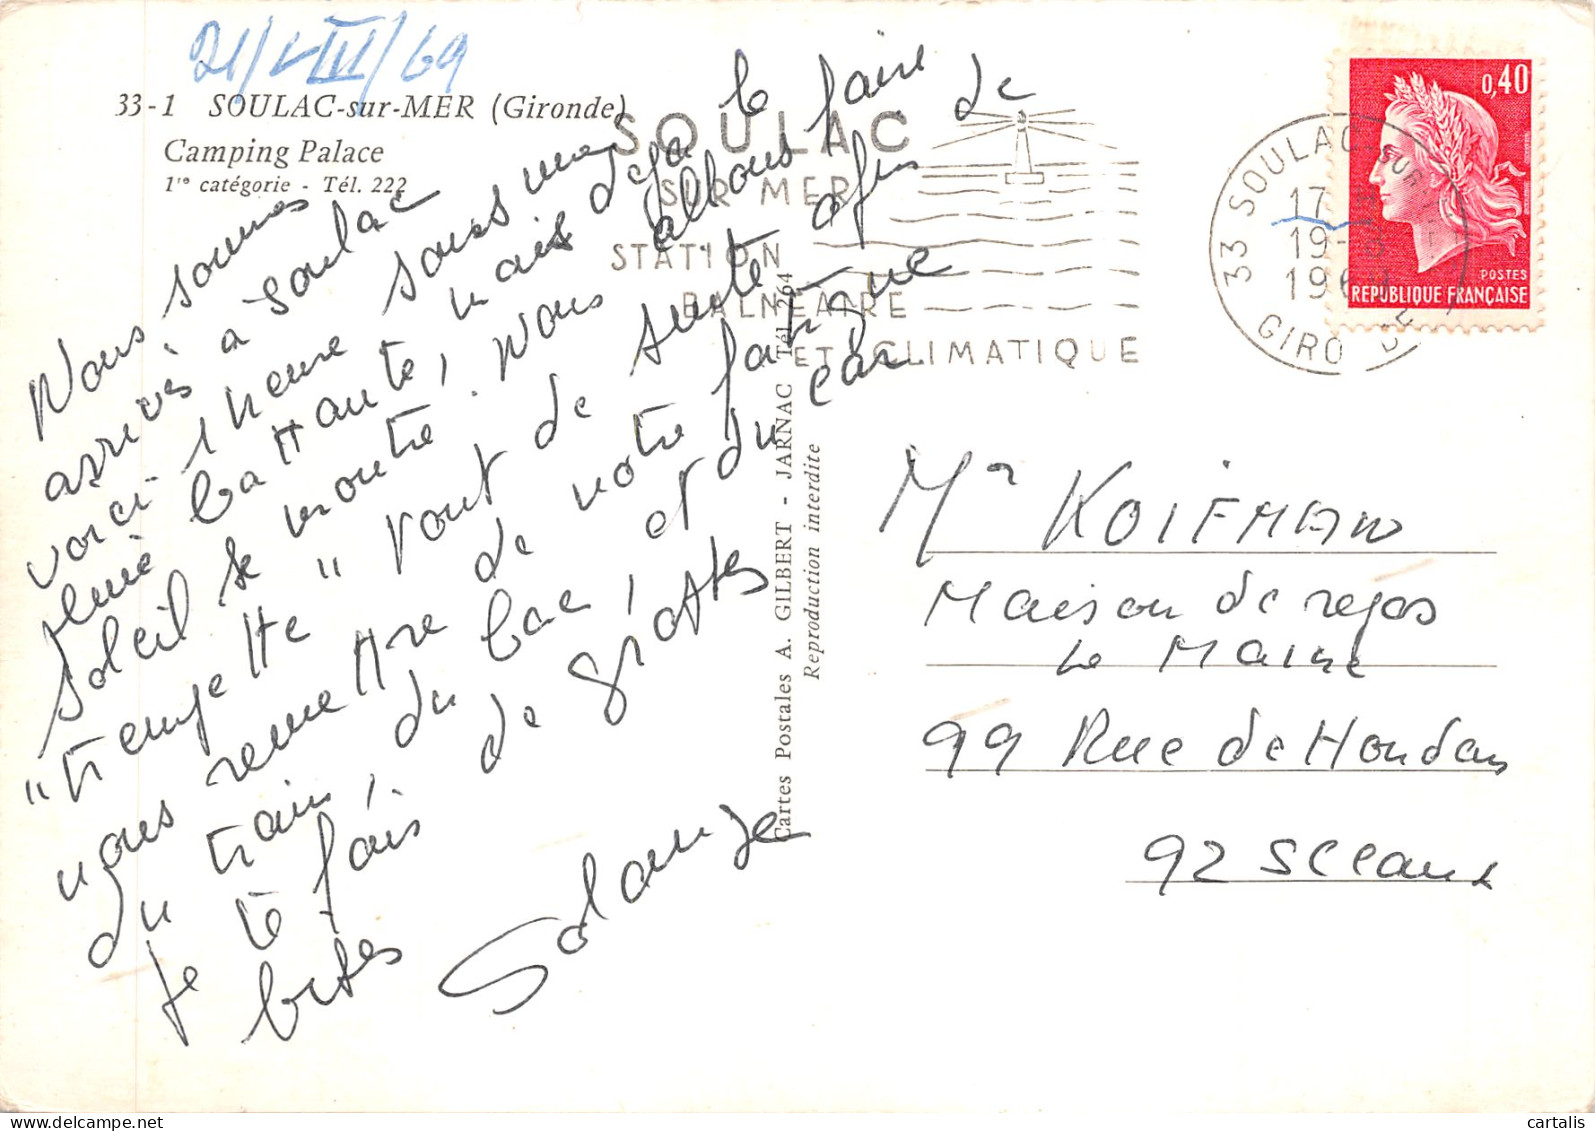 21/VIII/69
33-1 SOULAC-sur-MER (Gironde)
Camping Palace
1re catégorie - Tél. 222
Nous sommes
arrivés à Soulac
voici 1 heure sous une
pluie battante, mais déjà le
soleil se montre. Nous allons faire
"trempette" tout de suite afin de
vous remettre de votre fatigue
du train, du bac, et du car
Je te fais de grosses
bises
Solange
Cartes Postales A. GILBERT - JARNAC Tél. 264
Reproduction interdite
SOULAC
SUR MER
STATION
BALNEAIRE
ET CLIMATIQUE
33 SOULAC-SUR-
17
19-8
1969
GIRONDE
0,40
POSTES
REPUBLIQUE FRANÇAISE
Mr KOIFMAN
Maison de repos
Le Maine
99 Rue de Houdan
92 Sceaux
cartalis